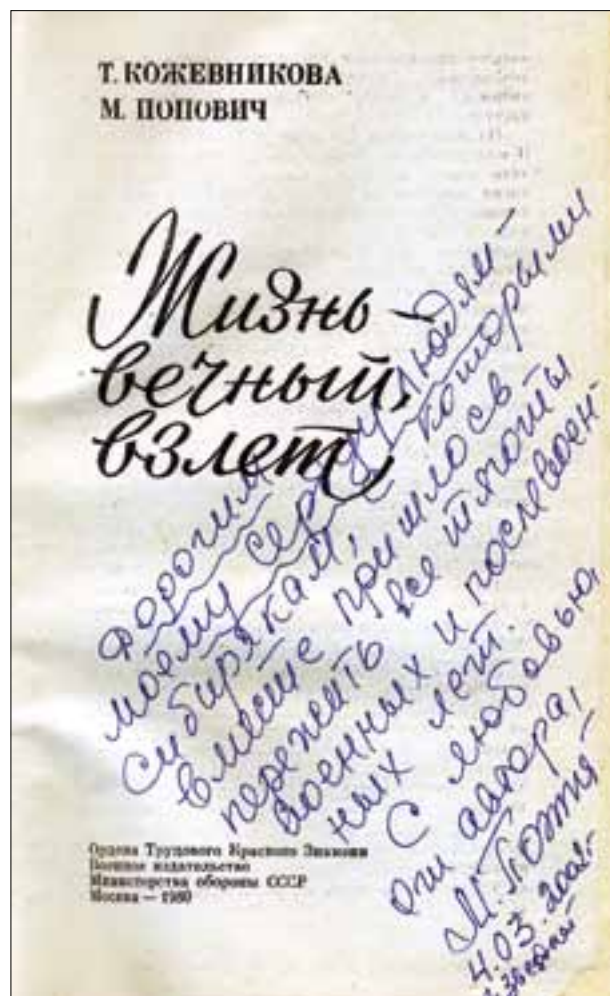 Т. КОЖЕВНИКОВА
М. ПОПОВИЧ
Жизнь –
вечный
взлет
Дорогим
моему сердцу людям –
сибирякам, с которыми
вместе пришлось
пережить все тяготы
военных и послевоен-
ных лет.
С любовью,
от автора,
М.
4.03.2002
Ордена Трудового Красного Знамени
Военное издательство
Министерства обороны СССР
Москва — 1980